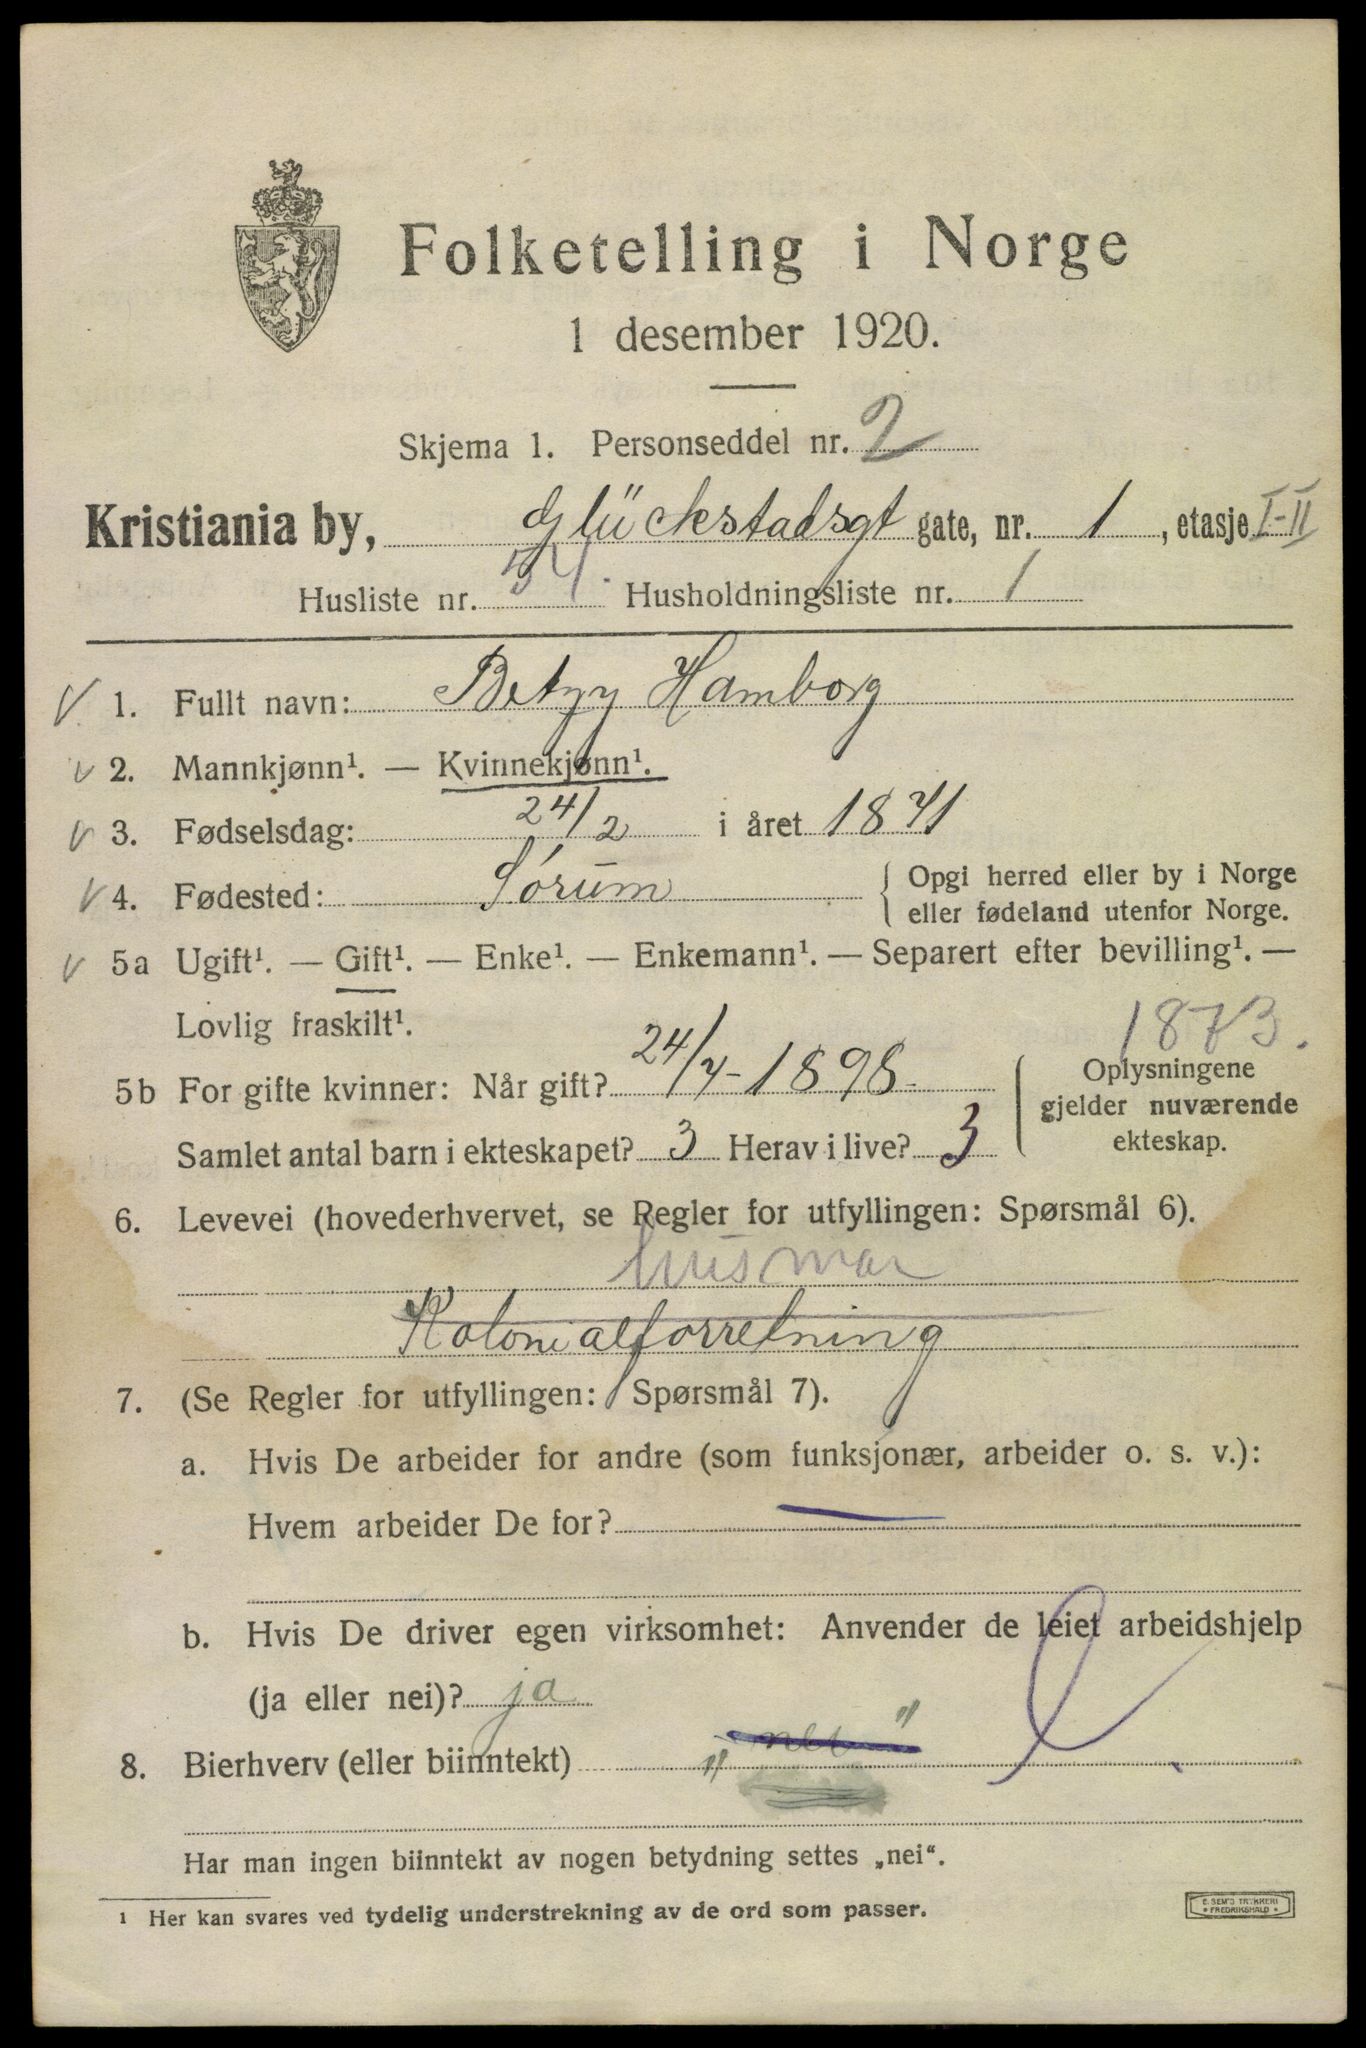 Folketelling i Norge
1 desember 1920.
Skjema 1. Personseddel nr. 2
Kristiania by, Glückstadsgt gate, nr. 1, etasje I-II
Husliste nr. 54. Husholdningsliste nr. 1
1. Fullt navn: Betzy Hamborg
2. Mannkjønn¹. — Kvinnekjønn¹.
3. Fødselsdag: 24/2 i året 1871
4. Fødested: Sórum { Opgi herred eller by i Norge
eller fødeland utenfor Norge.
5a Ugift¹. — Gift¹. — Enke¹. — Enkemann¹. — Separert efter bevilling¹. —
Lovlig fraskilt¹.
1873.
5b For gifte kvinner: Når gift? 24/7-1898. Oplysningene
gjelder nuværende
Samlet antal barn i ekteskapet? 3 Herav i live? 3 ekteskap.
6. Levevei (hovederhvervet, se Regler for utfyllingen: Spørsmål 6).
husmor
Kolonialforretning
7. (Se Regler for utfyllingen: Spørsmål 7).
a. Hvis De arbeider for andre (som funksjonær, arbeider o. s. v.):
Hvem arbeider De for? —
b. Hvis De driver egen virksomhet: Anvender de leiet arbeidshjelp
(ja eller nei)? ja
8. Bierhverv (eller biinntekt) „ nei "
Har man ingen biinntekt av nogen betydning settes „nei“.
¹ Her kan svares ved tydelig understrekning av de ord som passer.
E. SEM'S TRYKKERI
* FREDRIKSHALD *